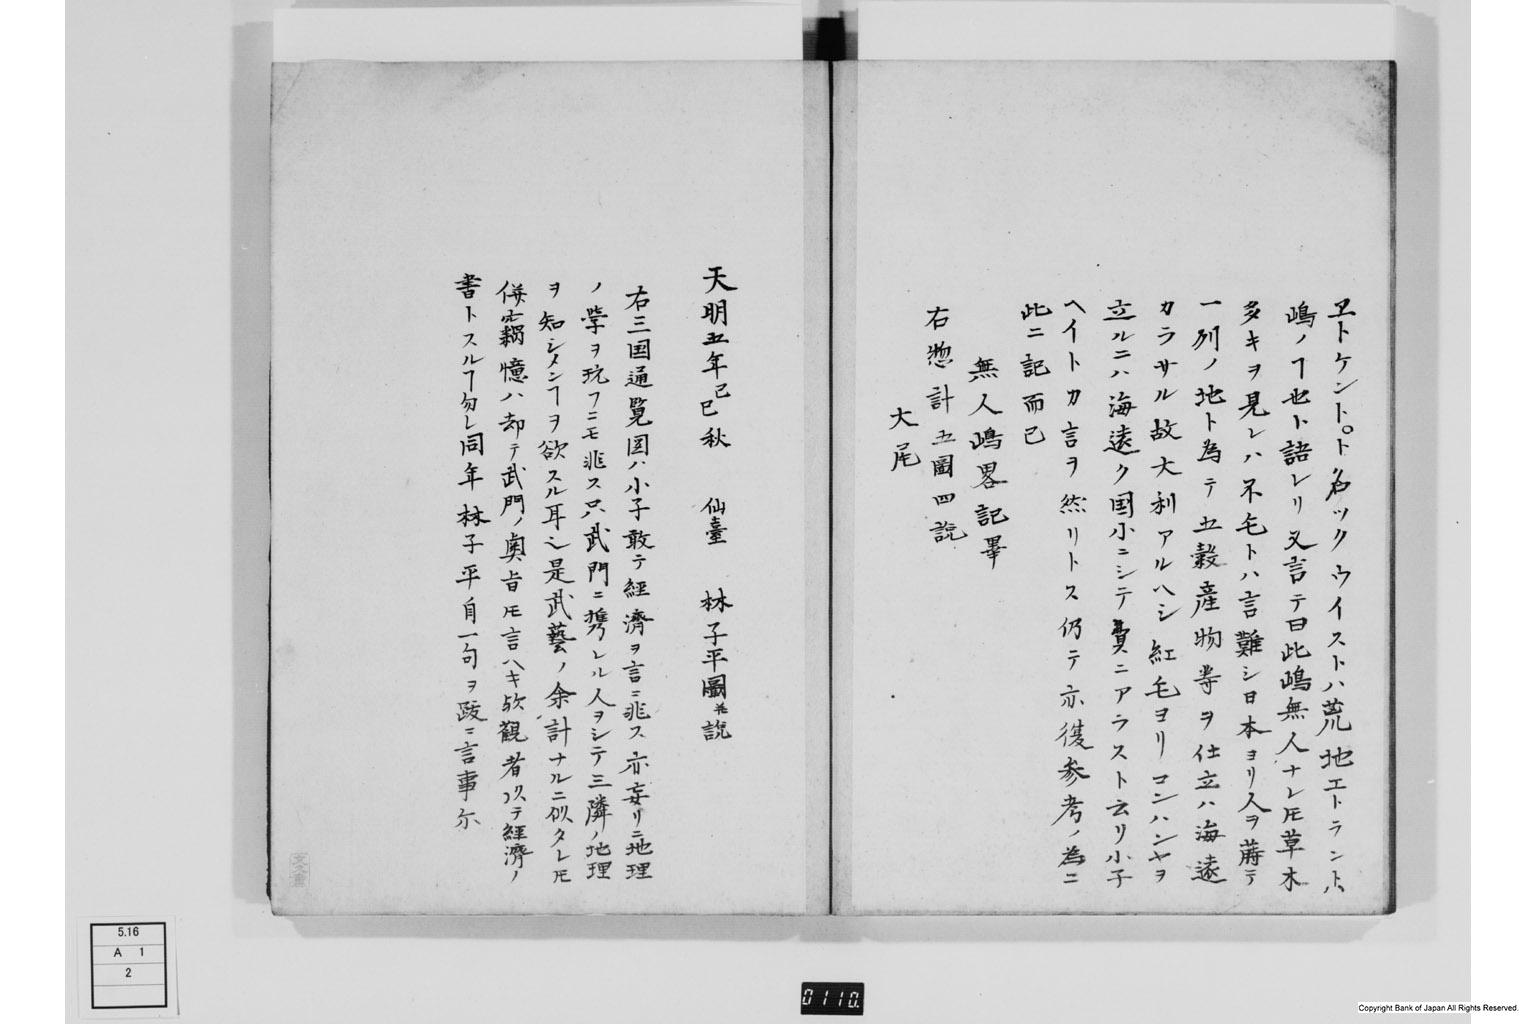 ヱトケントㇳ名ツクウイストハ荒地エトラントハ
嶋ノヿ也ト語レリ又言テ曰此嶋無人ナレ𪜈草木
多キヲ見レハ不毛トハ言難シ日本ヨリ人ヲ蒔テ
一列ノ地ト為テ五穀産物等ヲ仕立ハ海遠
カラサル故大利アルヘシ紅毛ヨリコンハンヤヲ
立ルニハ海遠ク国小ニシテ費ニアラスト云リ小子
ヘイトカ言ヲ然リトス仍テ亦後参考ノ為ニ
此ニ記而已
無人嶋畧記畢
右惣計五圖四説
大尾
天明五年己巳秋 仙臺 林子平圖並説
右三国通覧図ハ小子敢テ經濟ヲ言ニ非ス亦妄リニ地理
ノ学ヲ玩フニモ非ス只武門ニ携レル人ヲシテ三隣ノ地理
ヲ知シメンヿヲ欲スル耳シ是武藝ノ余計ナルニ似タレ𪜈
併竊憶ハ却テ武門ノ奥旨𪜈言ハキ欤觀者以テ經濟ノ
書トスルヿ勿レ同年林子平自一句ヲ跋ニ言事尓
5.16
A 1
2
0110.
Copyright Bank of Japan All Rights Reserved.